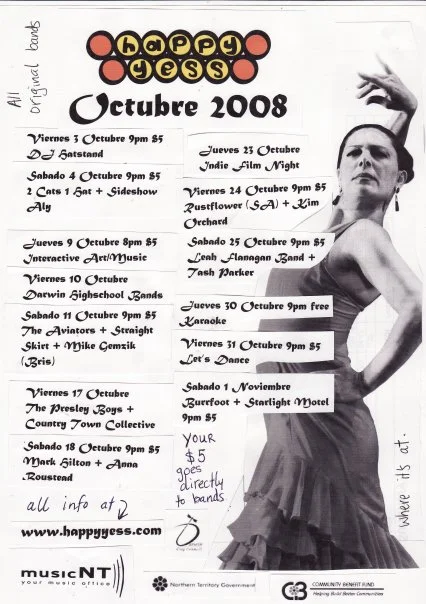 All
original bands
happy
yess
Octubre 2008
Viernes 3 Octubre 9pm $5
DJ Hatstand
Sabado 4 Octubre 9pm $5
2 Cats 1 Hat + Sideshow
Aly
Jueves 9 Octubre 8pm $5
Interactive Art/Music
Viernes 10 Octubre
Darwin Highschool Bands
Sabado 11 Octubre 9pm $5
The Aviators + Straight
Skirt + Mike Gemzik
(Bris)
Viernes 17 Octubre
The Presley Boys +
Country Town Collective
Sabado 18 Octubre 9pm $5
Mark Hilton + Anna
Roustead
all info at
www.happyyess.com
Jueves 23 Octubre
Indie Film Night
Viernes 24 Octubre 9pm $5
Rustflower (SA) + Kim
Orchard
Sabado 25 Octubre 9pm $5
Leah Flanagan Band +
Tash Parker
Jueves 30 Octubre 9pm free
Karaoke
Viernes 31 Octubre 9pm $5
Let's Dance
Sabado 1 Noviembre
Burrfoot + Starlight Motel
9pm $5
YOUR
$5
goes
directly
to bands
where it's at.
musicNT
your music office
Northern Territory Government
CBF
COMMUNITY BENEFIT FUND
Helping Build Better Communities